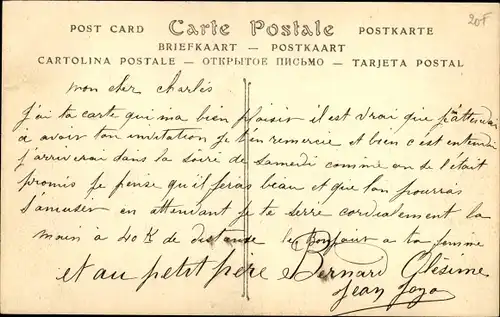 20F
POST CARD Carte Postale POSTKARTE
BRIEFKAART — POSTKAART
CARTOLINA POSTALE — ОТКРЫТОЕ ПИСЬМО — TARJETA POSTAL
mon cher Charles
J'ai ta carte qui ma bien plaisir il est vrai que j'attendai
à avoir ton invitation je t'en remercie et bien c'est entendu
j'arriverai dans la soiré de samedi comme on se l'était
promis je pense qu'il feras beau et que l'on pourras
s'amuser en attendant je te serre cordialement la
main à 40 K de distance le bonjour a ta femme
et au petit père Bernard Glésime
Jean